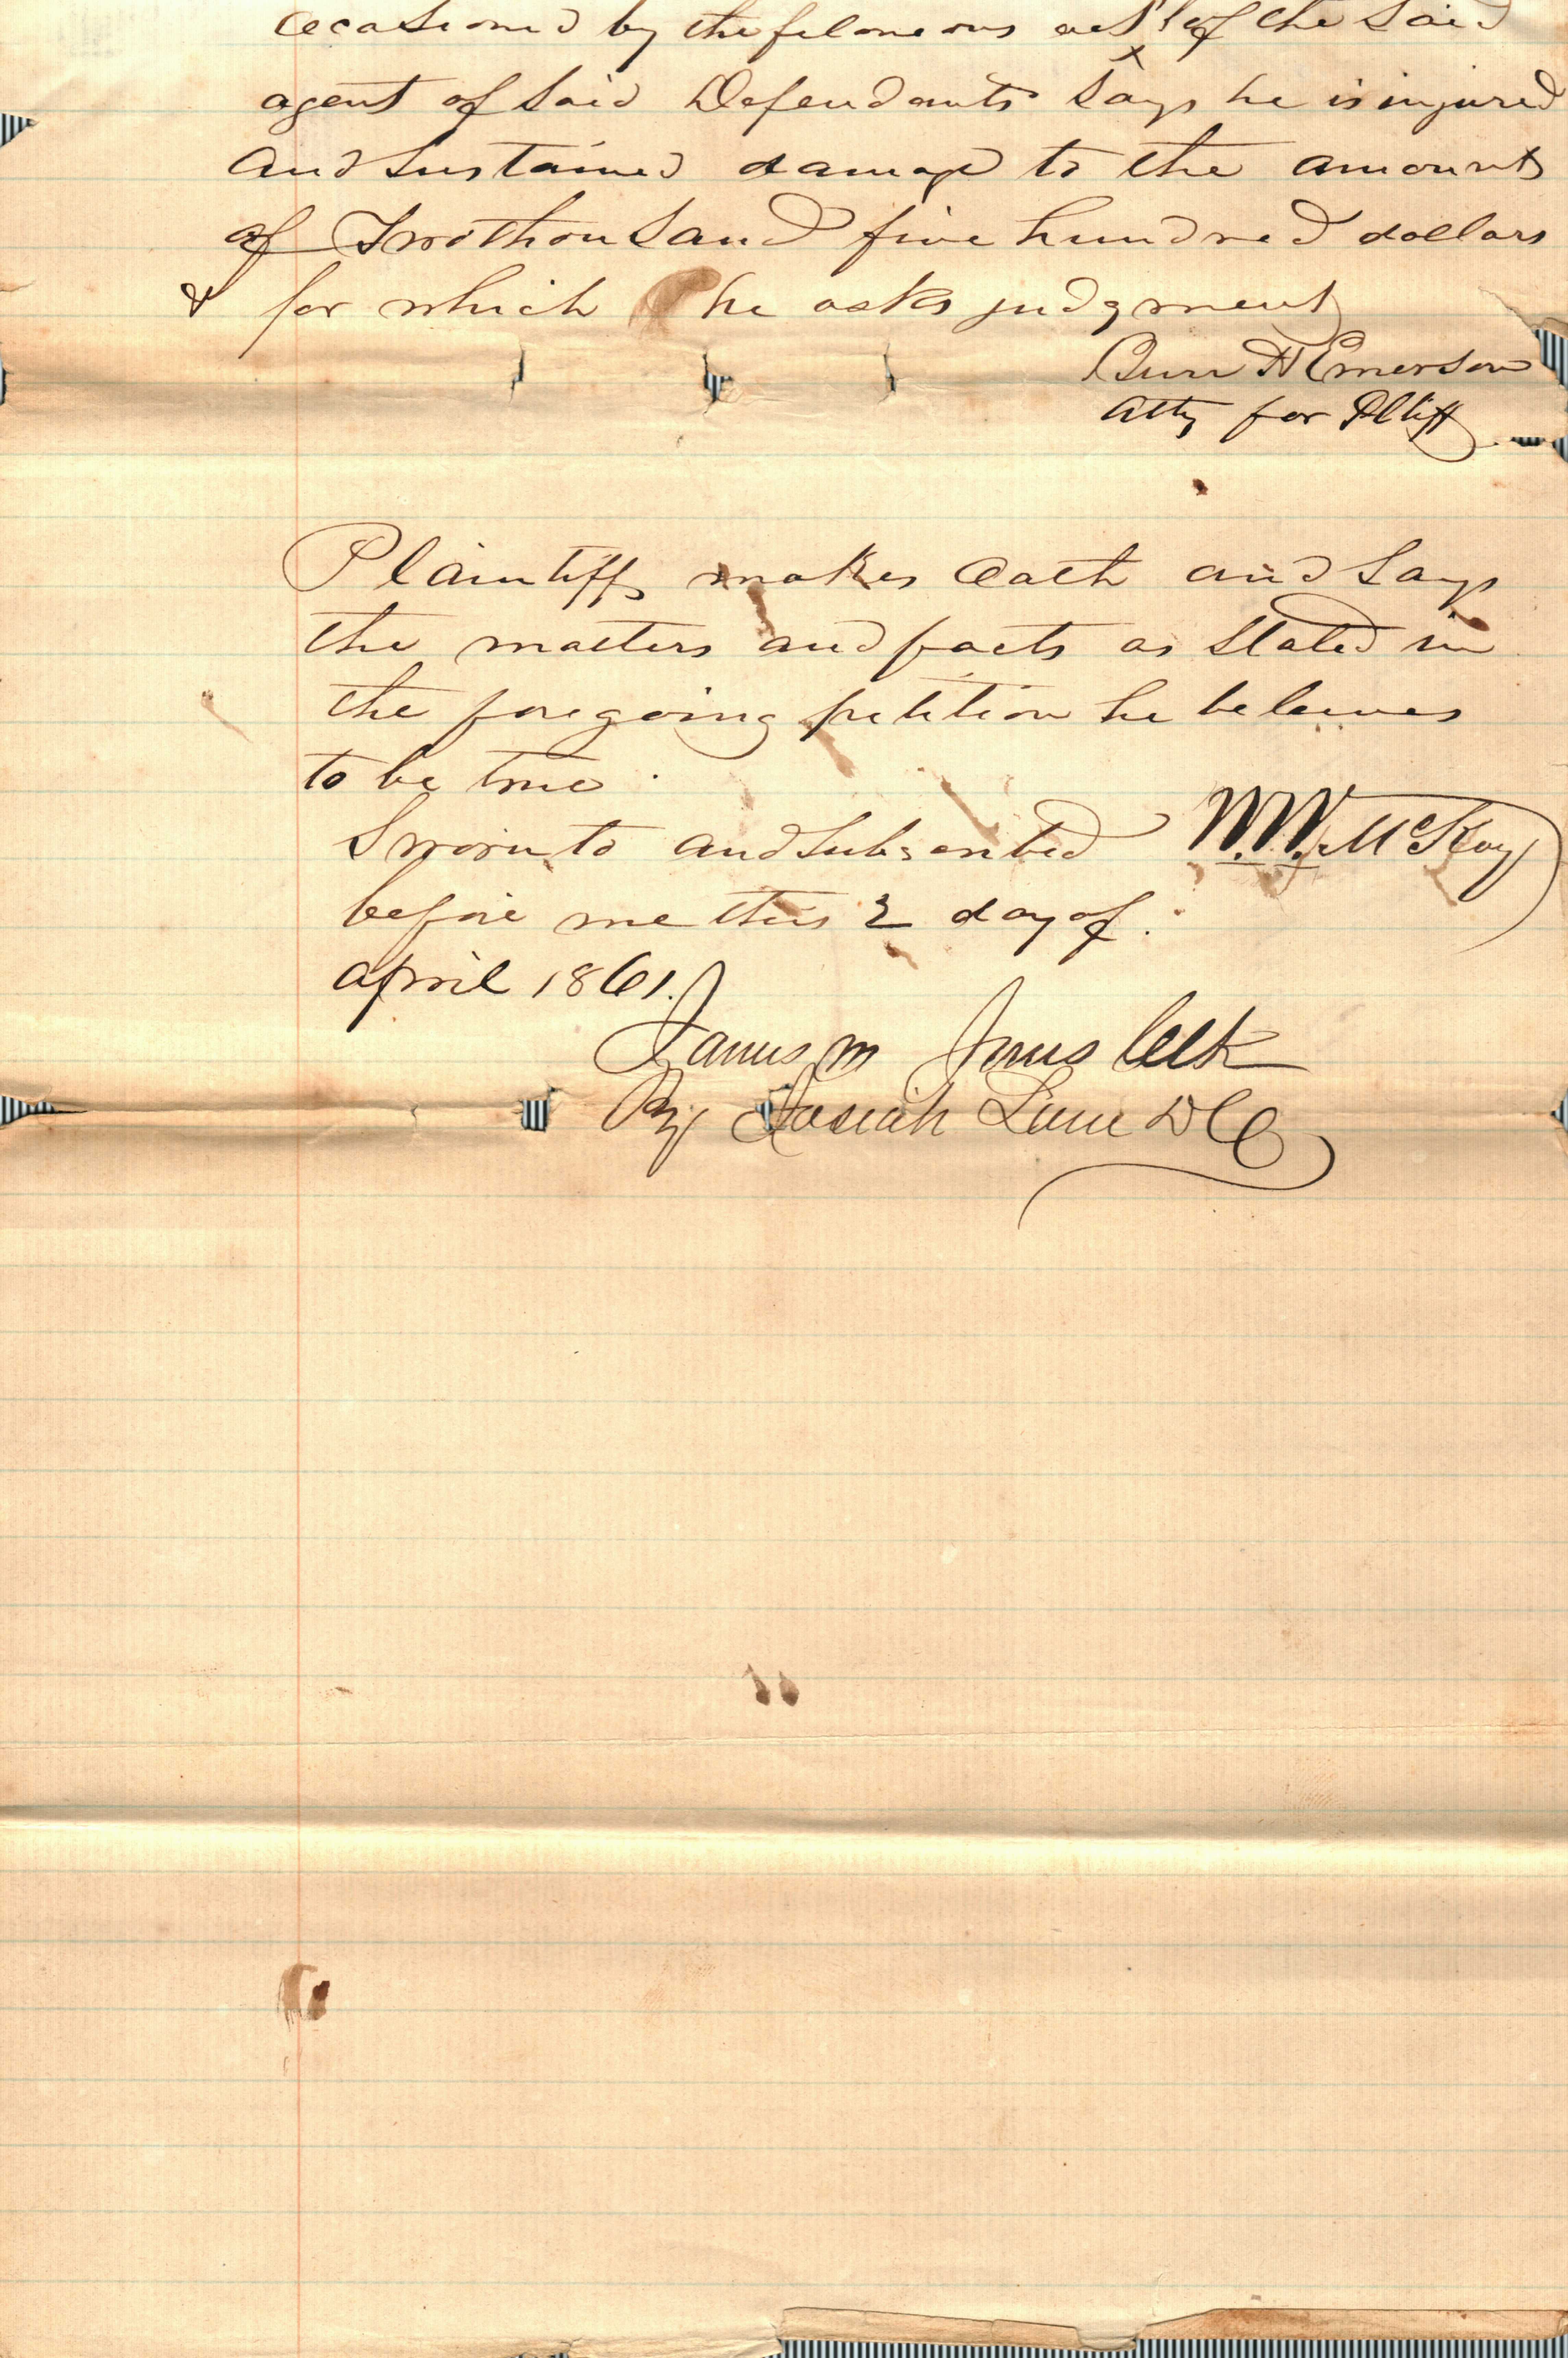 occasioned by the feloneous act of the said
agent of said Defendants says he is injured
and sustained damage to the amount
of Two thousand five hundred dollars
& for which he asks judgment
Burr H Emerson
Atty for Pltiff
Plaintiff makes oath and says
the matters and facts as stated in
the foregoing petition he beleives
to be true.
Sworn to and subscribed W.W. McKoy
before me this 2 day of.
April 1861.
James M Jones Clk
By Josiah Lane DC